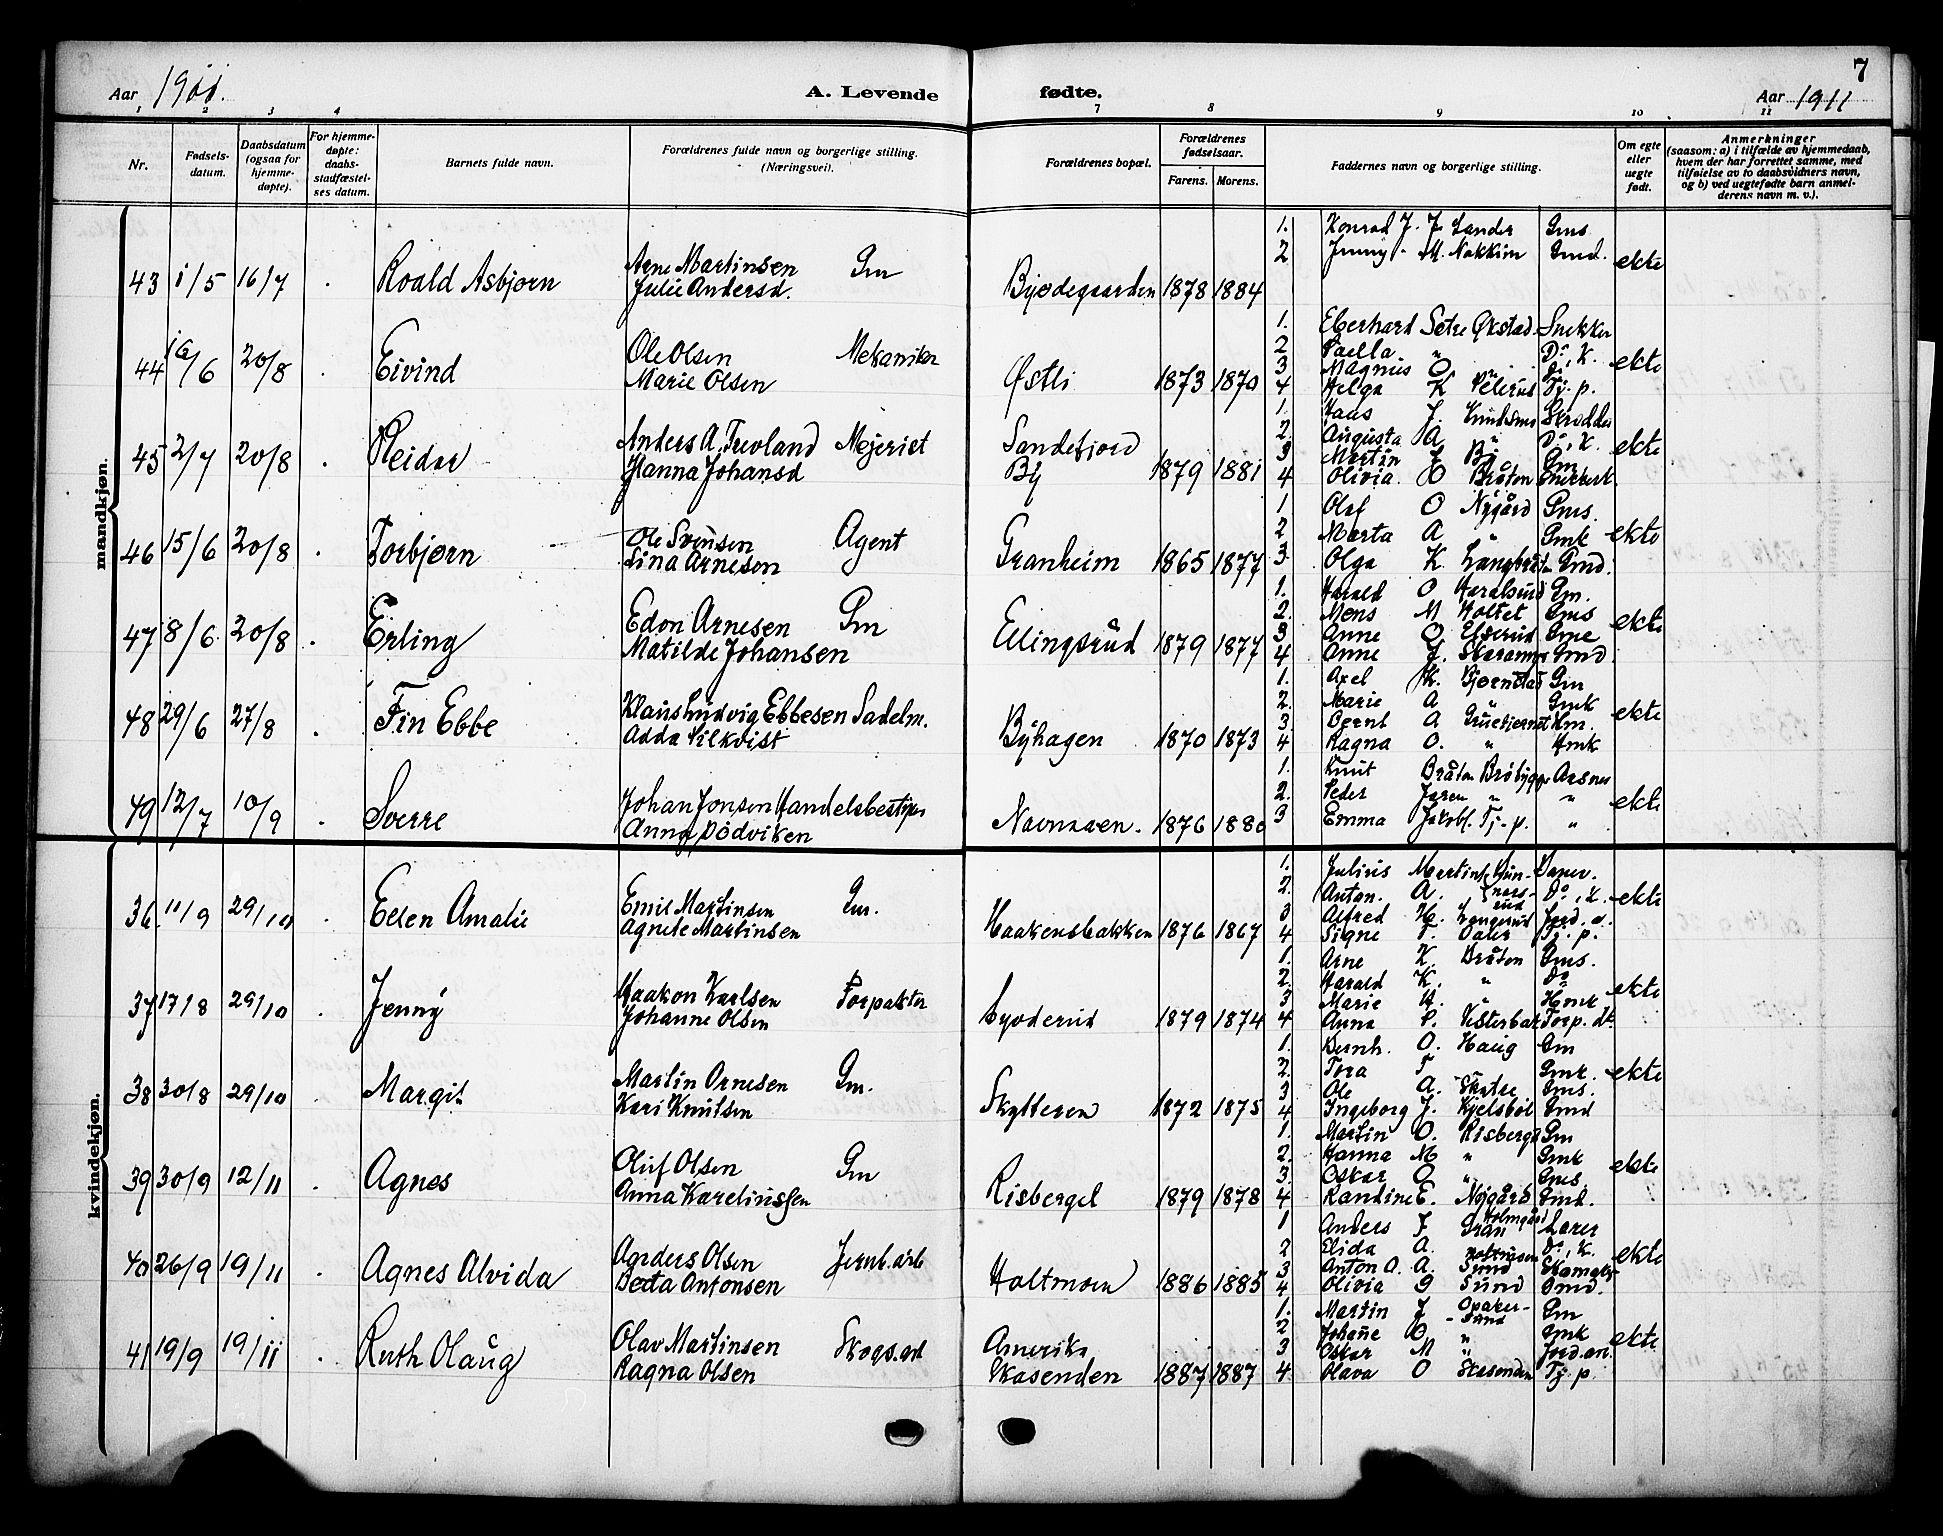 7
Aar 1911. A. Levende fødte. Aar 1911
1 2 3 4 7 8 9 10 11
Nr.
Fødsels-
datum.
Daabsdatum
(ogsaa for
hjemme-
døpte).
For hjemme-
døpte:
daabs-
stadfæstel-
ses datum.
Barnets fulde navn.
Forældrenes fulde navn og borgerlige stilling.
(Næringsvei).
Forældrenes bopæl.
Forældrenes
fødselsaar.
Farens. Morens.
Faddernes navn og borgerlige stilling.
Om egte
eller
uegte
født.
Anmerkninger
(saasom: a) i tilfælde av hjemmedaab,
hvem der har forrettet samme, med
tilføielse av to daabsvidners navn,
og b) ved uegtefødte barn anmel-
derens navn m. v.).
mandkjøn.
43 1/5 16/7 Roald Asbjørn
Arne Martinsen Gm
Julie Andersd.
Byødegaarden 1878 1884
1. Konrad J. J. Sander Gms
2 Jenny M. Nakkim Gmd.
ekte
44 16/6 20/8 Eivind
Ole Olsen Mekaniker
Marie Olsen
Østli 1873 1870
1. Eberhard Sætre Økstad Snekker
2 " Do, k.
3 Magnus O " Do
4 Helga K Tj. p.
ekte
45 2/7 20/8 Reidar
Anders A. Trevland Mejerist
Hanna Johansd
Sandefjord
By
1879 1881
1. Hans J. Knudsen Skrædder
2. Augusta A " Do, k.
3 Martin J By Gm
4 Olivia O Bråten
ekte
46 15/6 20/8 Torbjørn
Ole Svensen Agent
Lina Arnesen
Granheim 1865 1877
1 Olaf O Nygård Gms.
2 Marta A " Gmk
3 Olga K Gmd.
ekte
47 8/6 20/8 Erling
Edon Arnesen Gm
Matilde Johansen
Ellingsrud 1879 1877
1. Harald O Gm.
2. Mons M Holtet Gms
3 Anne O. Elserud Gme
4 Anne J. Gmd.
ekte
48 29/6 27/8 Fin Ebbe
Klaus Ludvig Ebbesen Sadelm.
Adda Silkvist
Byhagen 1870 1873
1. Axel K. Bjørnstad Gm
2. Marie A " Gmk
3. Bernt A Hm.
4 Ragna O. " Hmk
ekte
49 12/7 10/9 Sverre
Johan Jonsen Handelsbestyrer
Anna Dødviken
1876 1880
1. Knut Bråten Brobygger Aasnes
2. Peder Jaren " "
3 Emma Jakobs. Tj. p. "
ekte
kvindekjøn.
36. 11/9 29/10 Ellen Amalie
Emil Martinsen Gm.
Agnete Martinsen
Haakensbakken 1876 1867
1. Julius Martins
2. Anton. A. Do, k.
3 Alfred H. Langerud Jord. a.
4 Signe Tj. p.
ekte
37 17/8 29/10 Jenny
Haakon Karlsen Forpakter
Johanne Olsen
1879 1874
1. Arne K. Bråten Gms.
2. Harald K. " Do
3 Marie " Hmk
4 Anna Torp. dt.
ekte
38 30/8 29/10 Margit
Martin Ornesen Gm.
Kari Knutsen
Skytteren 1872 1875
1. Bernh. O. Haug Gm
2. Tora T Gmk.
3 Ole A. Skatre Gms.
4 Ingeborg J. Kjelsbøl Gmd
ekte
39 30/9 12/11 Agnes
Oluf Olsen Gm
Anna Karelinssen
Risberget 1879 1878
1. Martin O. Risberget Gm
2. Hanna M " Gmk
3. Oskar O " Gms.
4 Randine E. Nygård Gmd.
ekte
40 26/9 19/11 Agnes Alvida
Anders Olsen Jernb. arb
Berta Antonsen
Holtmoen 1886 1885
1 Anders J Gran Holmgård Lærer
2 Elida A. Do, k.
3 Anton O. A. Sund Skomaker
4 Olivia G Sund Gmd.
ekte
41 19/9 19/11 Ruth Olaug
Olav Martinsen Skogs. arb
Ragna Olsen
Amerika
Kasenden
1887 1887
1. Martin J Opaker-
sund Gm
2 Johane O. " Gmk
3 Oskar M " Jord. arb.
4 Olava O Kasenden Tj. p.
ekte